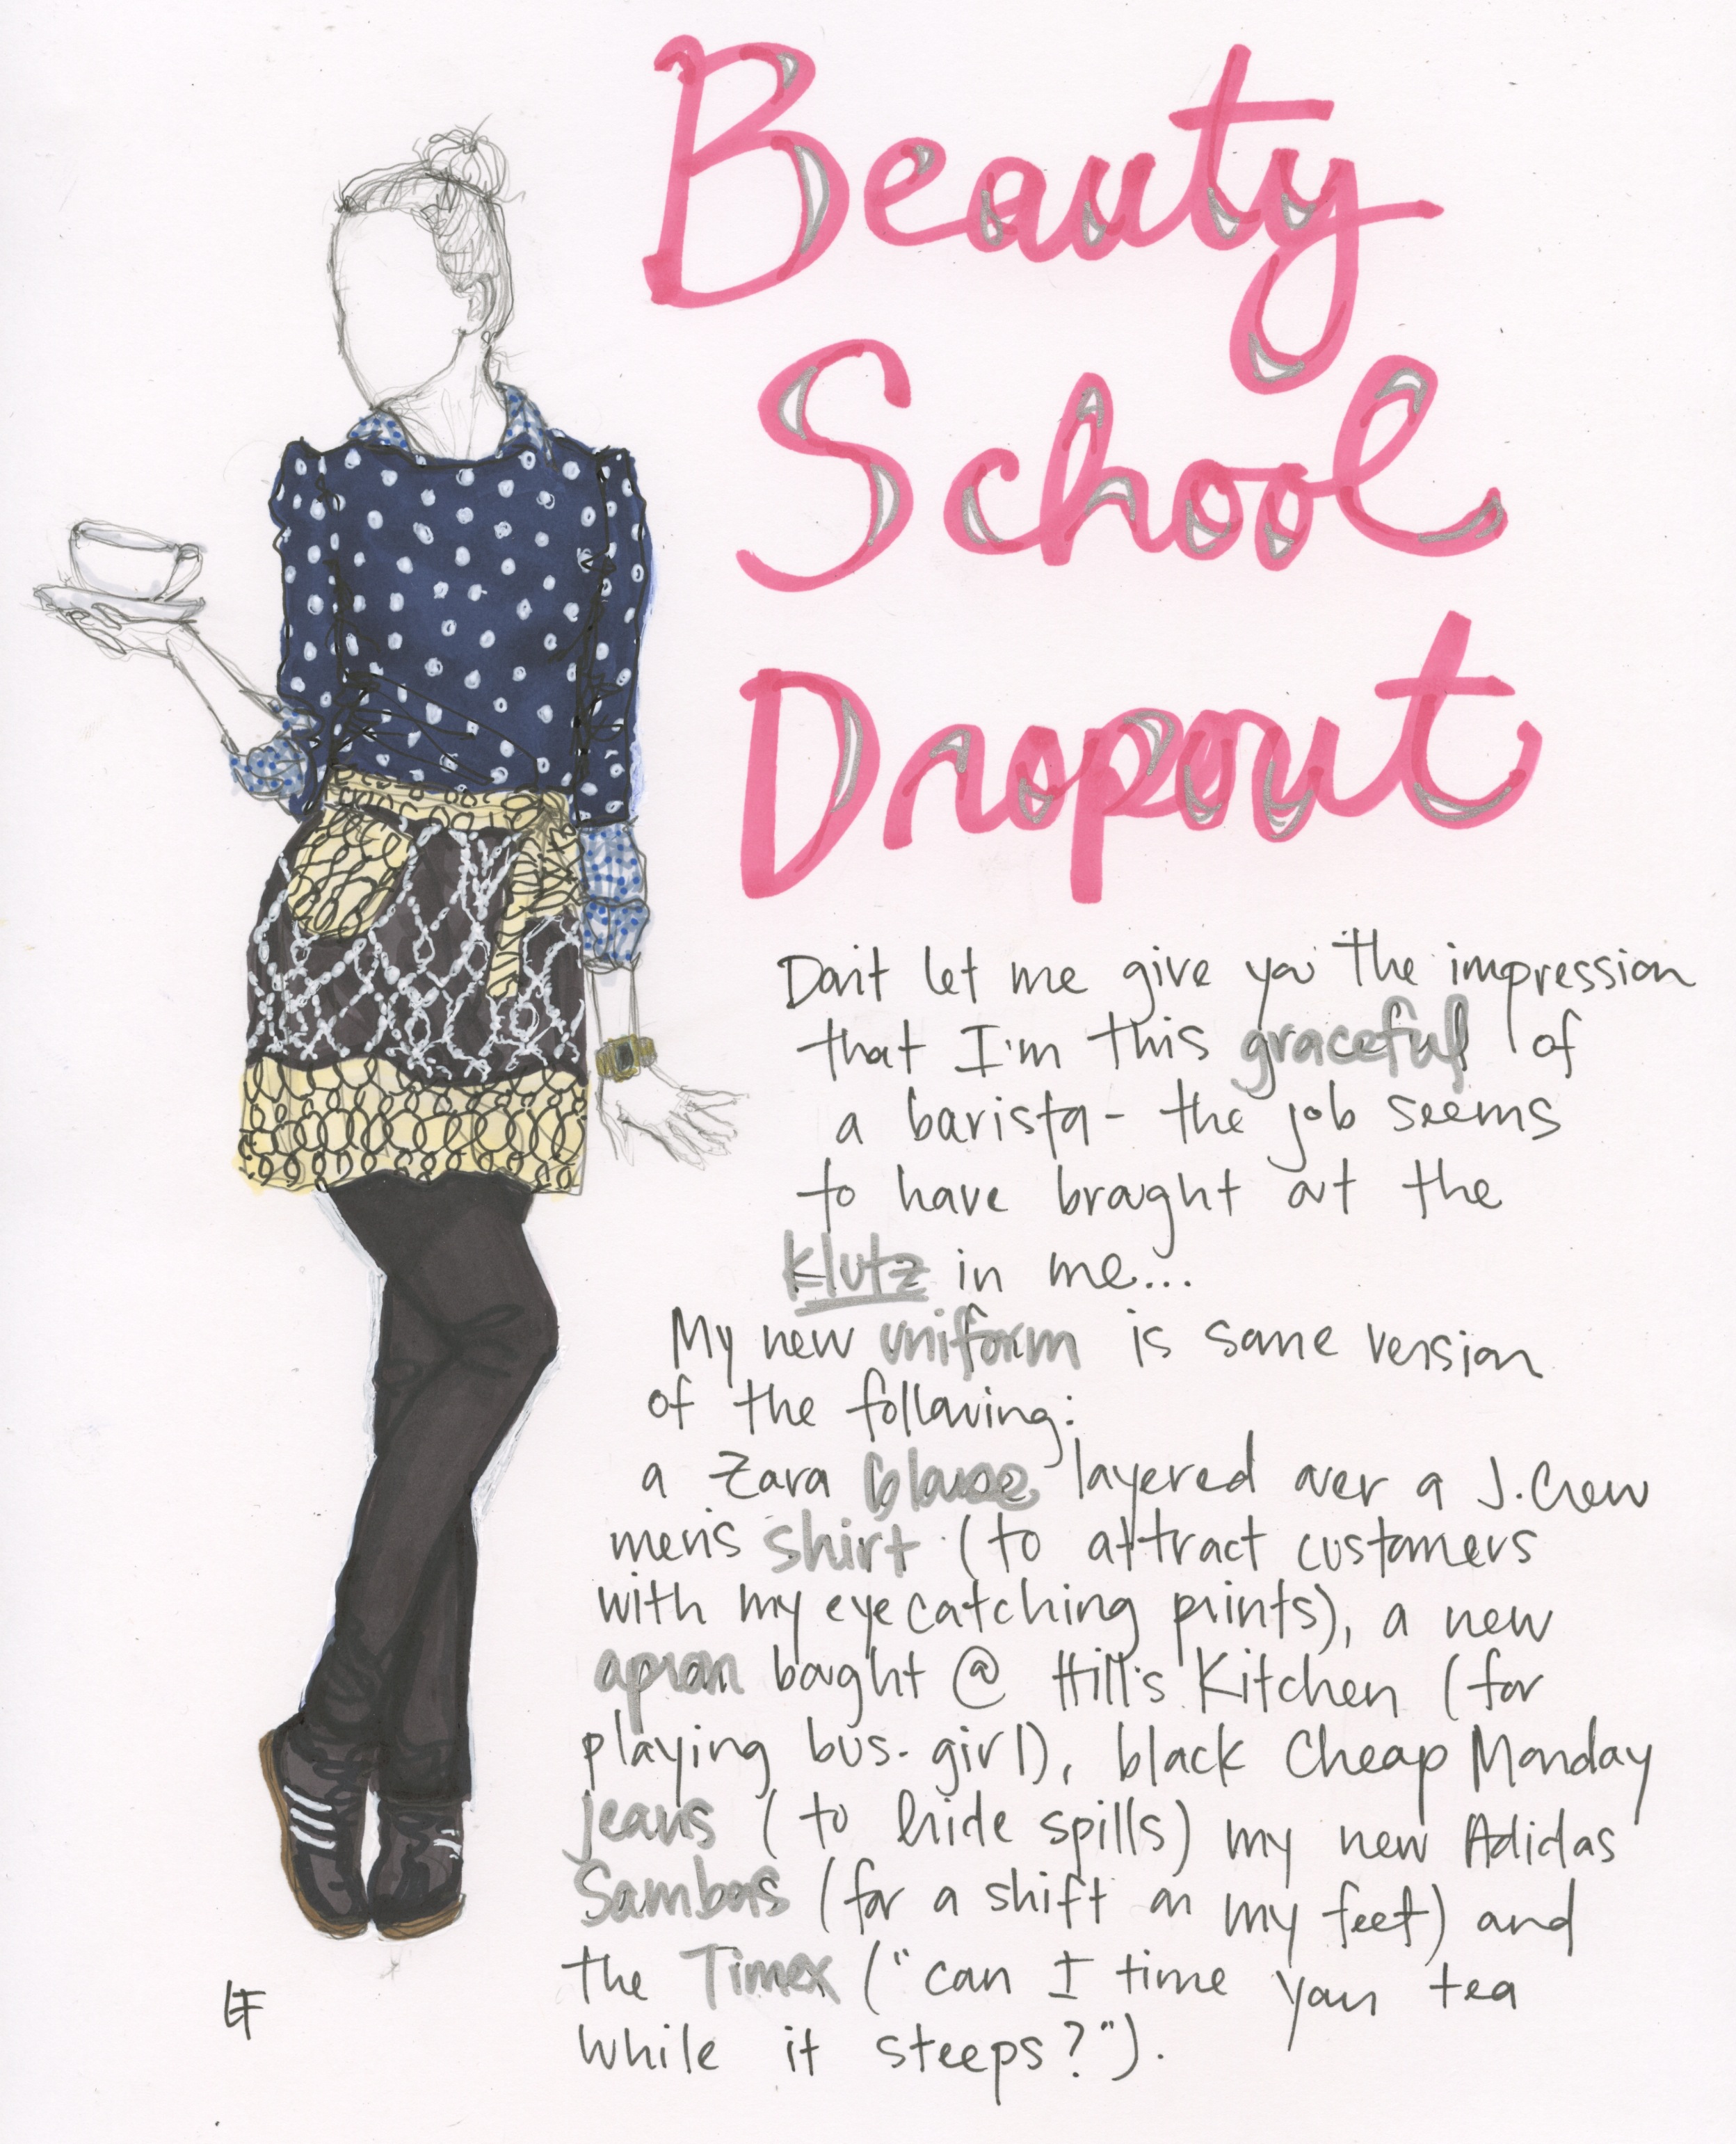 Beauty
School
Dropout
Don't let me give you the impression
that I'm this graceful of
a barista - the job seems
to have brought out the
klutz in me...
My new uniform is some version
of the following:
a Zara blouse layered over a J.Crew
men's shirt (to attract customers
with my eyecatching prints), a new
apron bought @ Hill's Kitchen (for
playing bus-girl), black Cheap Monday
jeans (to hide spills) my new Adidas
Sambas (for a shift on my feet) and
the Timex ("can I time your tea
while it steeps?").
LF